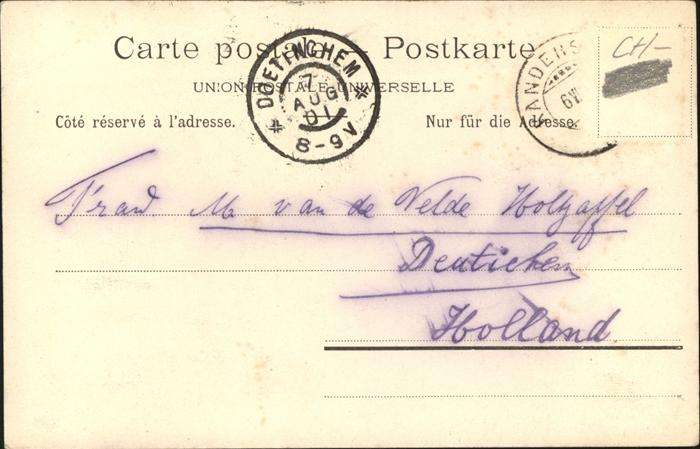 Carte postale. — Postkarte.
UNION POSTALE UNIVERSELLE
Côté réservé à l'adresse.
Nur für die Adresse.
DOETINCHEM
7
AUG
01
8-9V
KANDERS
6 VI
CH-
Frau M van de Velde Holzaffel
Deutichem
Holland.